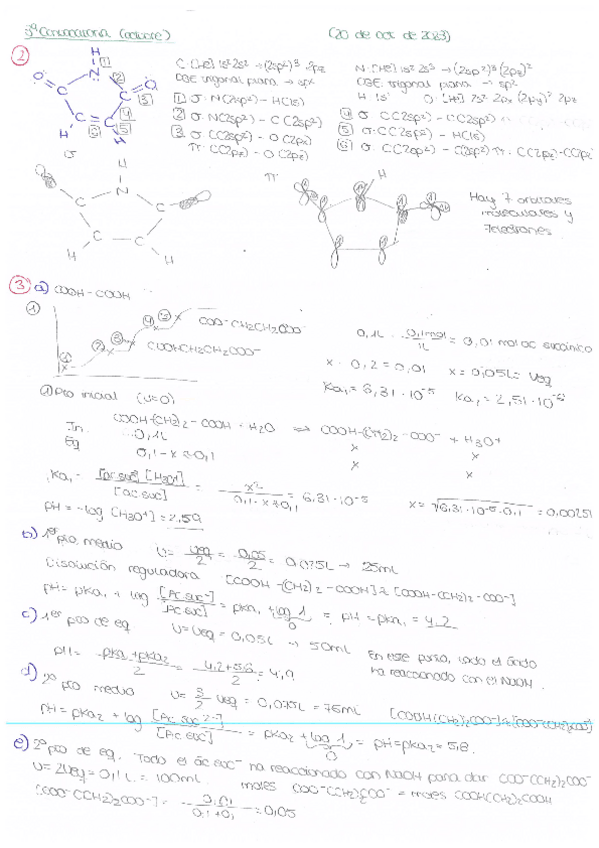 3ª Convocatoria (octubre) (20 de oct de 2023)
2
C: [He] 1s² 2s² → (2sp²)³ 2pz N: [He] 1s² 2s³ → (2sp²)³ (2pz)²
CGE trigonal plana → sp² CGE trigonal plana → sp²
H 1s¹ O: [He] 2s² 2px (2py)² 2pz
1 σ: N(2sp²) - H(1s) 4 σ C(2sp²) - C(2sp²)
2 σ: N(2sp²) - C(2sp²) 5 σ: C(2sp²) - H(1s)
3 σ C(2sp²) - O(2pz) 6 σ C(2sp²) - C(2sp²) π: C(2pz) - C(2pz)
π: C(2pz) - O(2pz)
H
N
O
O
H
C = C
H
1
2
3
4
5
6
σ
π
H
N
C
C
C - C
H
H
H
Hay 7 orbitales
moleculares y
7 electrones
3 a) COOH-COOH
1
COO⁻CH2CH2COO⁻
COOHCH2CH2COO⁻
1
2
3
4
5
0,1L · 0,1mol/1L = 0,01 mol ác succínico
x · 0,2 = 0,01 x = 0,05L = Veq
Ka1 = 6,31·10⁻⁵ Ka2 = 2,51·10⁻⁶
a) Pto inicial (v=0)
COOH-(CH2)2-COOH + H2O ⇌ COOH-(CH2)2-COO⁻ + H3O⁺
In. 0,1
x x
Eq 0,1-x≈0,1 x x
Ka1 = [Ac suc⁻][H3O⁺]/[Ac suc] = x²/0,1-x≈0,1 = 6,31·10⁻⁵ x = √6,31·10⁻⁵·0,1 = 0,00251
pH = -log [H3O⁺] = 2,59
b) 1er pto. medio v = Veq/2 = 0,05/2 = 0,025L → 25mL
Disolución reguladora [COOH-(CH2)2-COOH] ≈ [COOH-(CH2)2-COO⁻]
pH = pKa1 + log [Ac suc⁻]/[Ac suc] = pKa1 + log 1 = pH = pKa1 = 4,2
0
c) 1er pto de eq v = Veq = 0,05L → 50mL
pH = pKa1 + pKa2/2 = 4,2+5,6/2 = 4,9
En este punto, todo el ácido
ha reaccionado con el NaOH.
d) 2º pto medio v = 3/2 Veq = 0,075L = 75mL [COOH(CH2)2COO⁻] ≈ [COO⁻(CH2)2COO⁻]
pH = pKa2 + log [Ac suc²⁻]/[Ac suc] = pKa2 + log 1 = pH = pKa2 = 5,6.
0
e) 2º pto de eq. Todo el ác suc⁻ ha reaccionado con NaOH para dar COO⁻(CH2)2COO⁻
v = 2Veq = 0,1L = 100mL moles COO⁻(CH2)2COO⁻ = moles COOH(CH2)2COOH
[COO⁻(CH2)2COO⁻] = 0,01/0,1+0,1 = 0,05